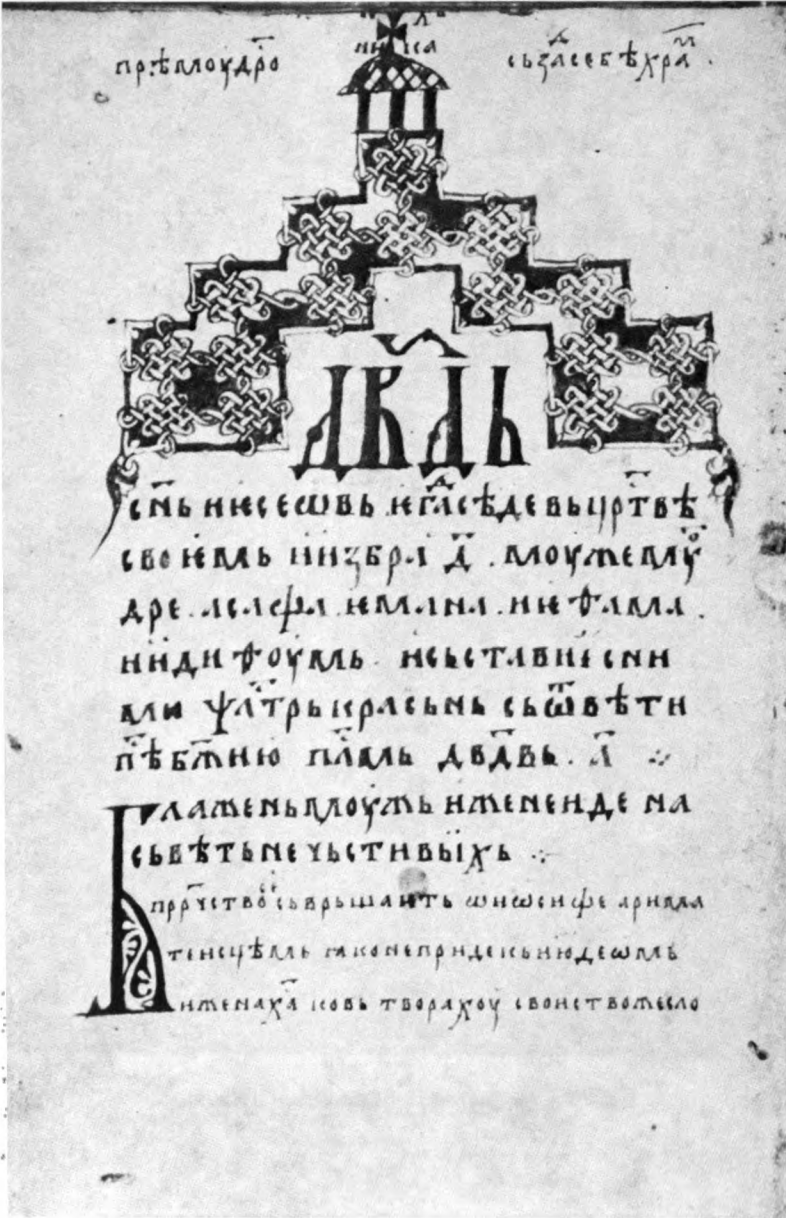 прѣмоудро сьзда себѣ храм
ника
двдь
снь иесеѡвь . и егда сѣде вь цртвѣ
своемь и избра д . моуже моу
дре . асафа . и емана . и еѳама .
и идиѳоумь . и сьставише с ни
ми ѱлтрь красьнь сь ѡвѣтни
пѣ бжию плмь двдвь . а ⁘
Блажень моужь иже не иде на
сьвѣть нечьстивыихь ⁘
прорчство сьврьшаить ѡ иѡсифе арима
теисцѣмь яко не приде кь июдеѡмь
иже на ха ковь творахоу свои ство же сло